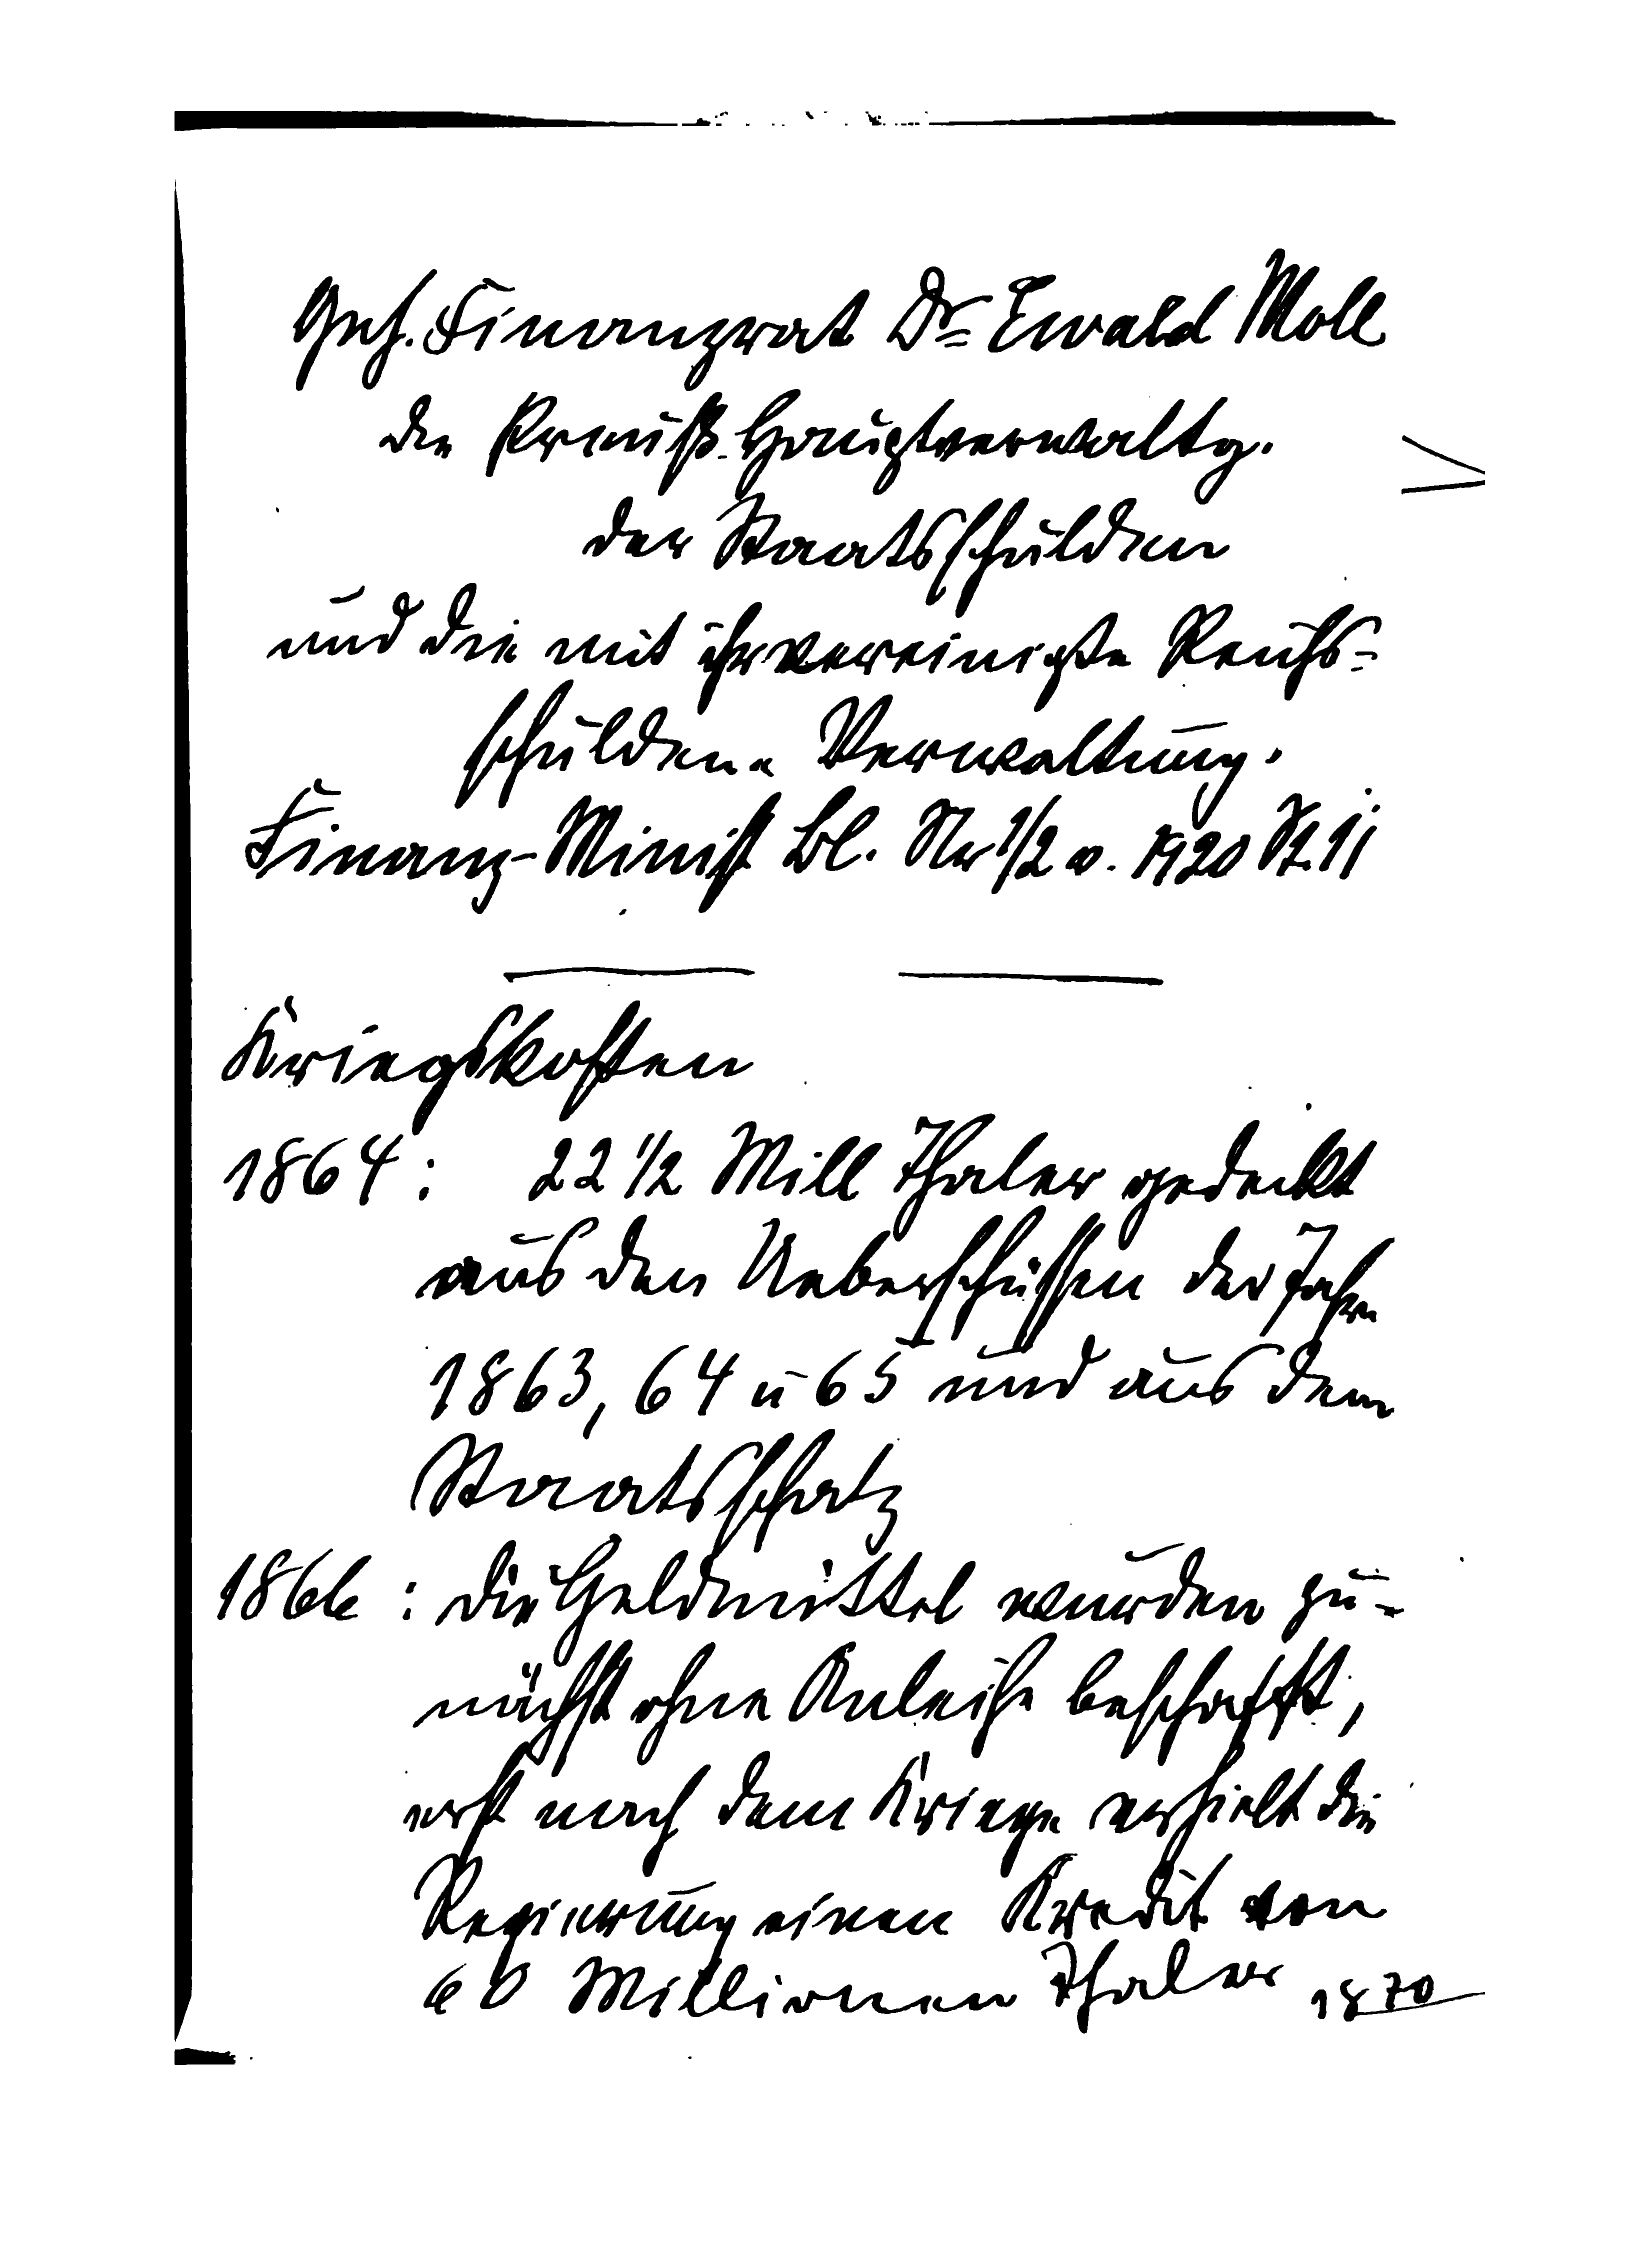 Geh. Finanzrat Dr. Ewald Moll
die Preuß. Hauptverwaltg.
der Staatsschulden
und die mit ihr vereinigte Reichs-
schulden-Verwaltung.
Finanz-Minist Bl. Nr 1/2 v. 1920 St. 11
Kriegskosten
1864: 22 1/2 Mill Thaler gedeckt
aus den Ueberschüssen der Jahre
1863, 64 u 65 und aus dem
Staatsschatz
1866: die Geldmittel wurden zu-
nächst ohne Anleihe beschafft,
erst nach dem Kriege erhielt die
Regierung einen Kredit von
60 Millionen Thaler 1870